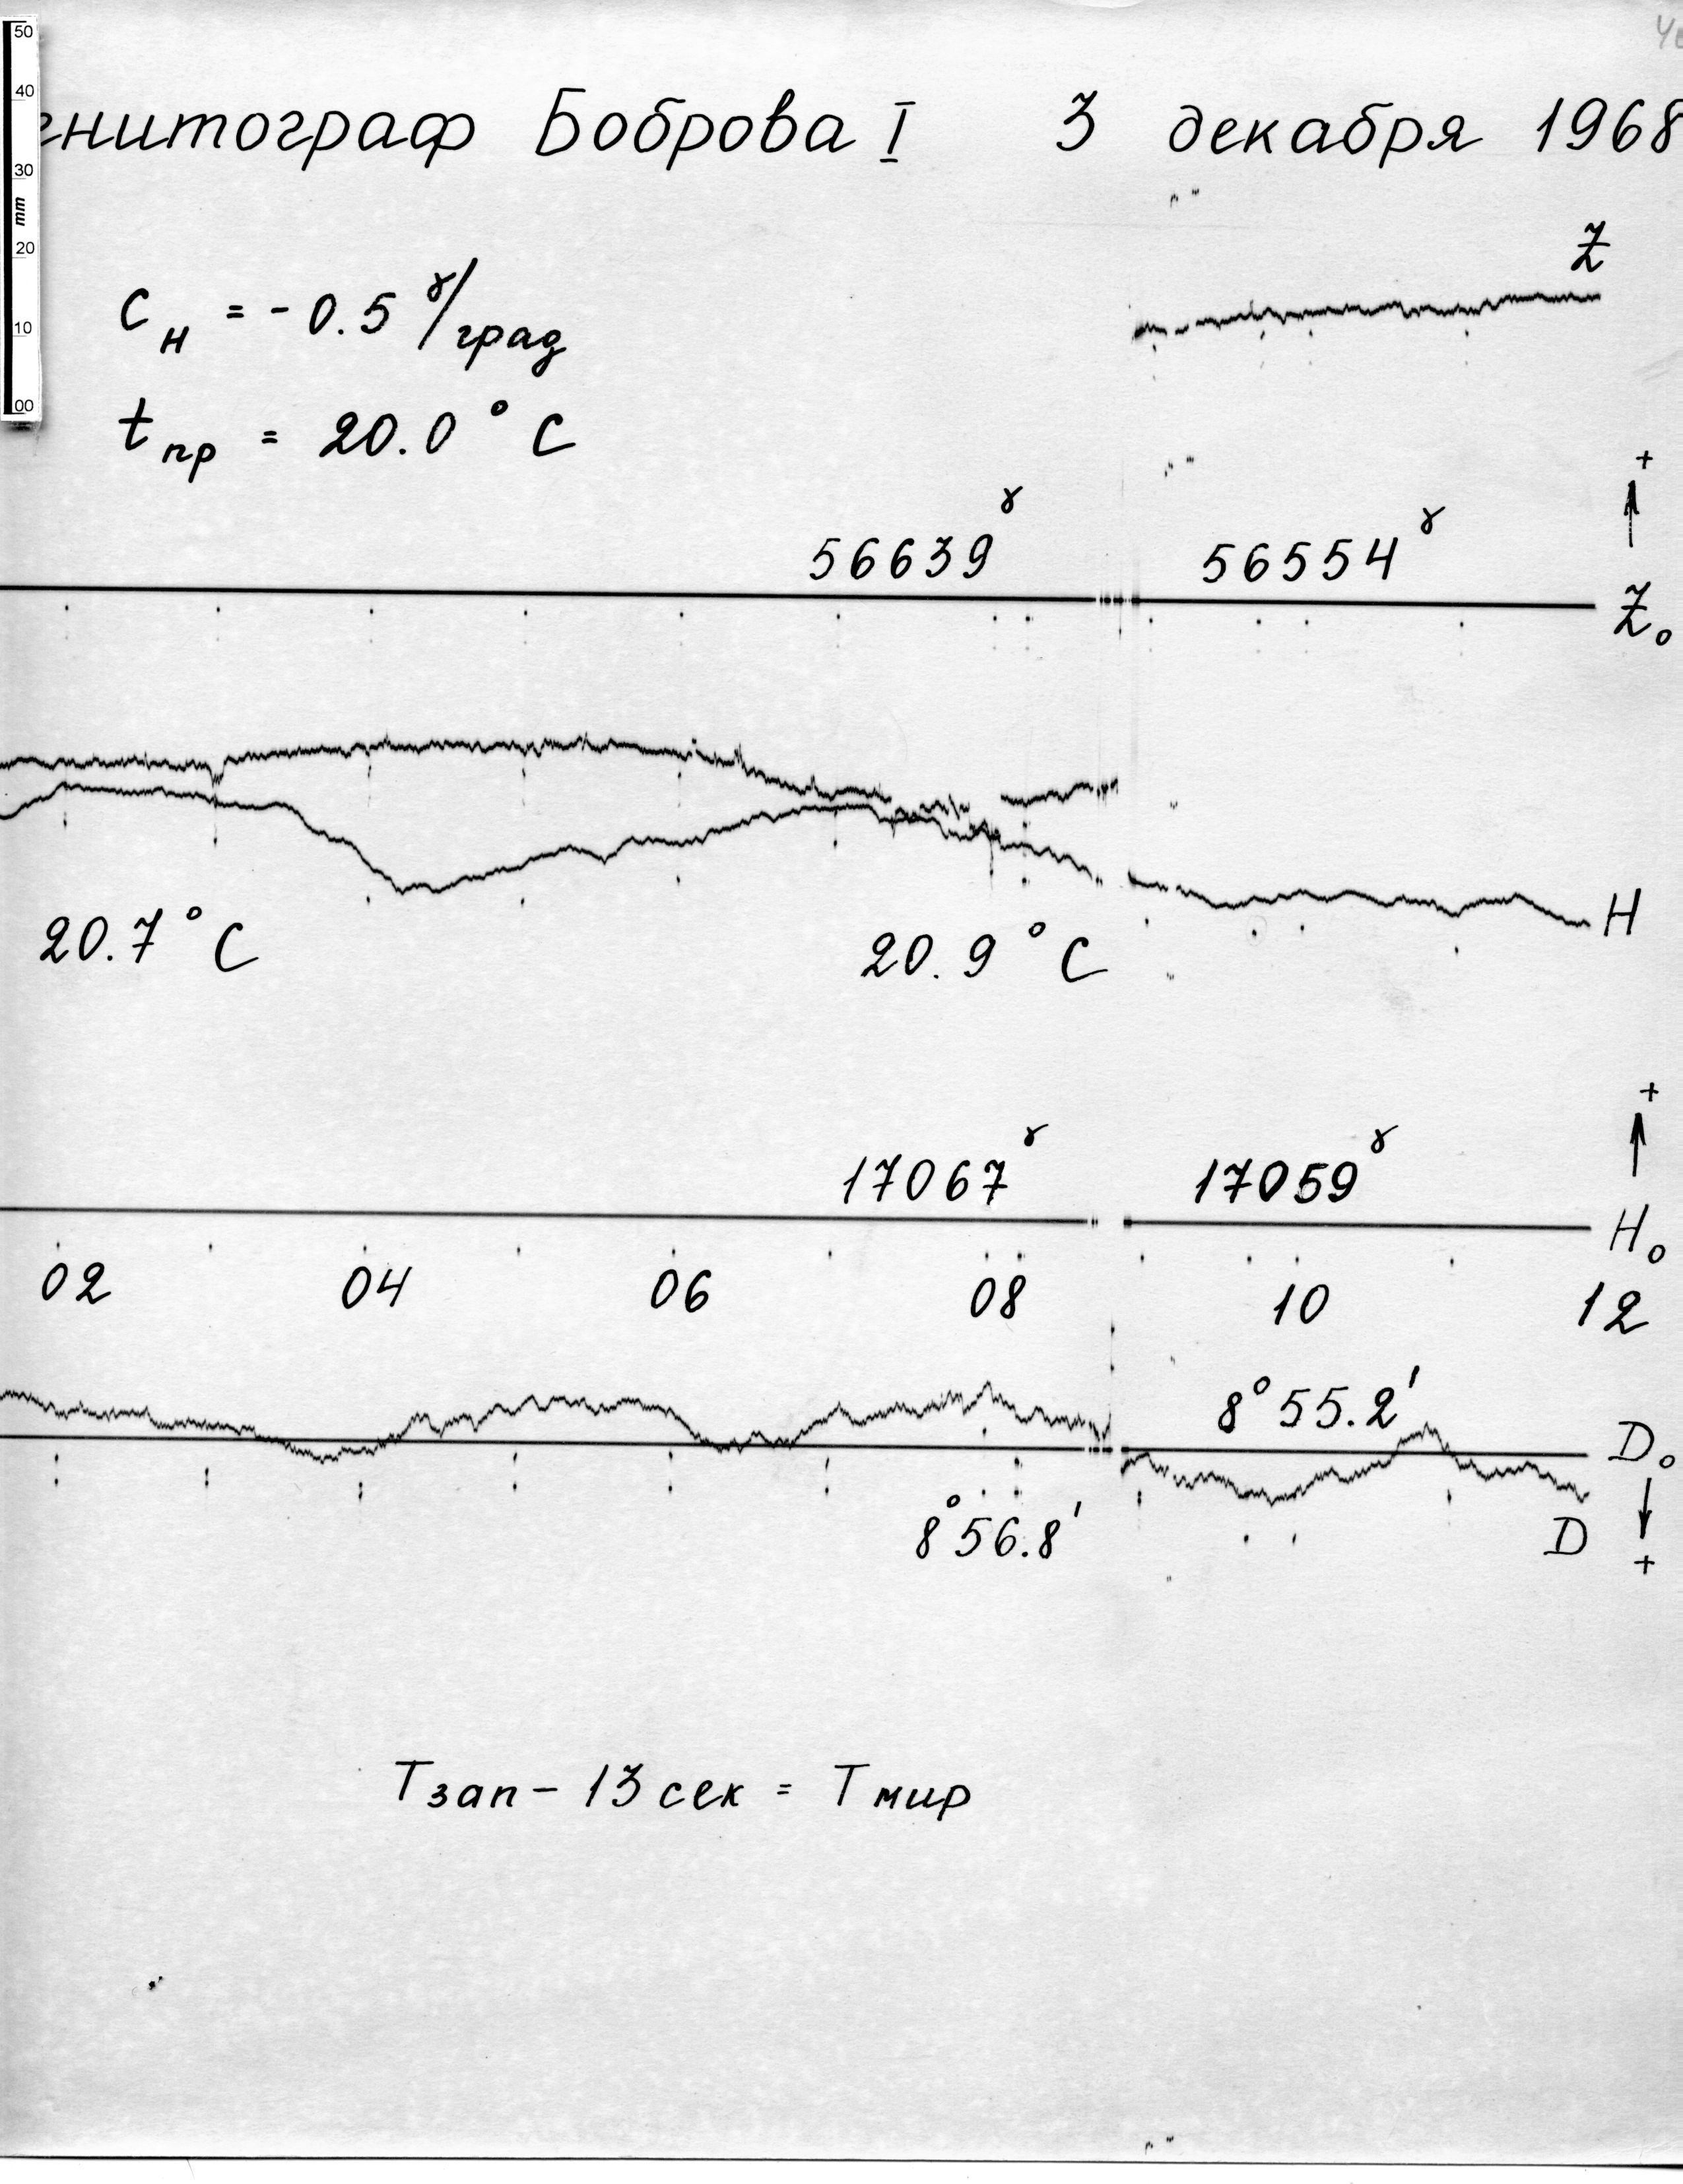 50
40
30
mm
20
10
00
гнитограф Боброва I 3 декабря 1968
C_H = -0.5 γ/град
t_пр = 20.0° C
Z
+
56639γ 56554γ
Z₀
20.7° C 20.9° C H
+
17067γ 17059γ
H₀
02 04 06 08 10 12
8°55.2'
D₀
8°56.8' D
+
Tзап - 13 сек = Tмир